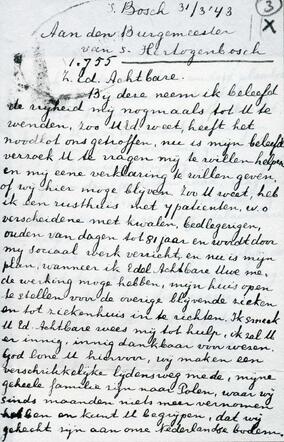 S. Bosch 31/3 '43
3
X
Aan den Burgemeester
van s. Hertogenbosch
1.755
Z. Ed. Achtbare.
By deze neem ik beleefd
de vryheid my nogmaals tot U te
wenden, zoo U Ed weet, heeft het
noodlot ons getroffen, nue is myn beleefd
verzoek U te vragen my te willen helpen
en my eene verklaring te willen geven,
of wy hier moge blyven. Zoo U weet, heb
ik een rusthuis met 7 patienten, w.o
verscheidene met kwalen, bedlegerigen,
ouden van dagen tot 81 jaar en wordt door
my sociaal werk verricht, en nu is myn
plan, wanneer ik Edel Achtbare Uwe me,
de werking moge hebben, myn huis open
te stellen voor de overige blyvende zieken
en tot ziekenhuis in te richten. Ik smeek
U Ed. Achtbare wees my tot hulp, ik zal U
er innig, innig dankbaar voor wezen.
God lone U hiervoor, wy maken een
verschrikkelyke lydensweg mede, myne
geheele familie zyn naar Polen, waar wy
sinds maanden niets meer vernomen
hebben en kunt U begrypen, dat wy
gehecht zyn aan onze Nederlandse bodem.